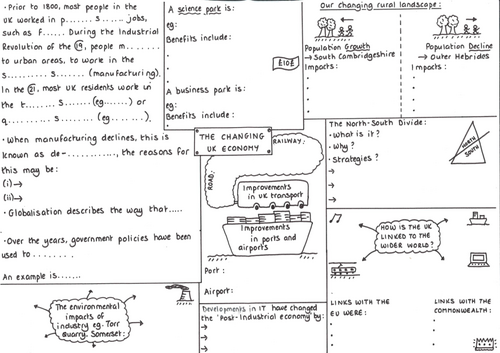 • Prior to 1800, most people in the
UK worked in p...... s...... jobs,
such as F..... During the Industrial
Revolution of the 19, people m......
to urban areas, to work in the
s......... s.......... (manufacturing).
In the 21, most UK residents work in
the t........ s....... (eg.......) or
q.......... s........ (eg........).
• When manufacturing declines, this is
known as de-............, the reasons for
this may be:
(i)→
(ii)→
• Globalisation describes the way that.....
• Over the years, government policies have been
used to ........
An example is.......
The environmental
impacts of
industry eg. Torr
quarry. Somerset:
A science park is:
eg:
Benefits include:
£10E
A business park is:
eg:
Benefits include:
THE CHANGING
UK ECONOMY
ROAD:
RAILWAY:
Improvements
in UK transport
Improvements
in ports and
airports
Port:
Airport:
Developments in IT have changed
the 'Post-Industrial economy by:
→
→
→
Our changing rural landscape:
Population Growth
→ South Cambridgeshire
Impacts:
Population Decline
→ Outer Hebrides
Impacts:
The North-South Divide:
• What is it?
• Why?
• Strategies?
→
→
→
NORTH
SOUTH
HOW IS THE UK
LINKED TO THE
WIDER WORLD?
LINKS WITH THE
EU WERE:
LINKS WITH THE
COMMONWEALTH: